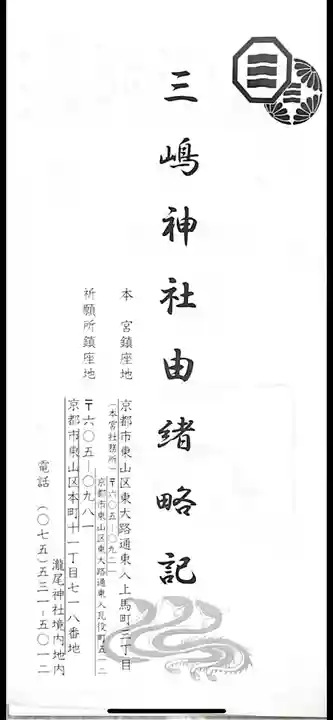 三嶋神社由緒略記
本　宮鎮座地　京都市東山区東大路通東入上馬町三丁目
（本宮社務所）〒六〇五―〇九二一
京都市東山区東大路通東入瓦役町五一二
祈願所鎮座地　〒六〇五―〇九八一
京都市東山区本町十一丁目七一八番地
瀧尾神社境内地内
電話　（〇七五）五三一―五〇一二